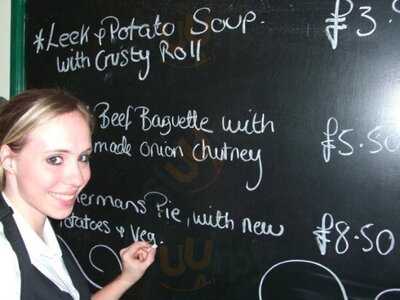 *Leek & Potato Soup. £3.
with Crusty Roll
Beef Baguette with
made onion chutney £5.50
ermans Pie, with new
otatoes & veg. £8.50